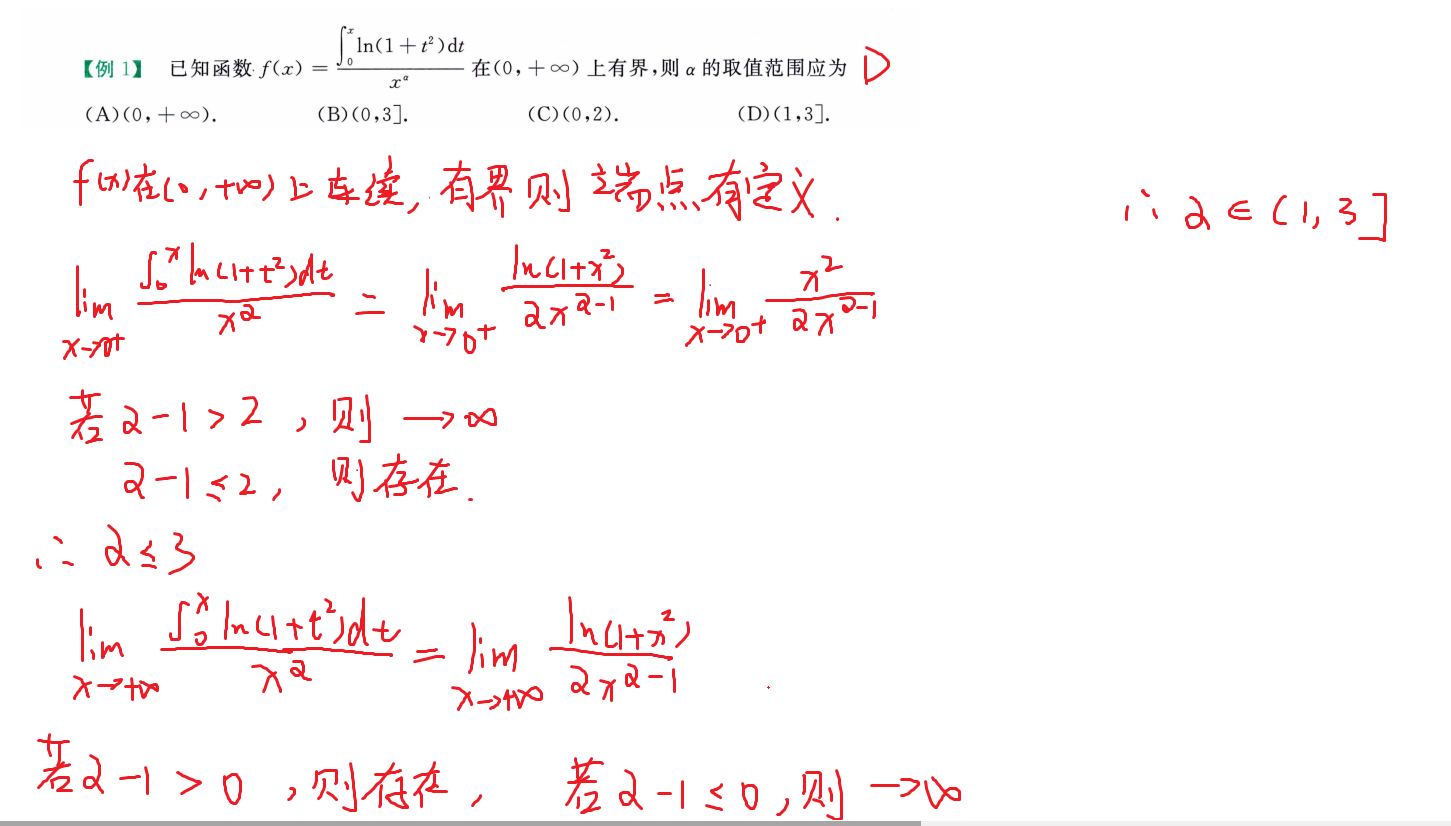 【例 1】 已知函数 f(x) = \frac{\int_0^x \ln(1+t^2)dt}{x^α} 在(0,+∞)上有界,则 α 的取值范围应为 D
(A)(0,+∞). (B)(0,3]. (C)(0,2). (D)(1,3].
f(x)在(0,+∞)上连续,有界则端点有定义.
∴ α ∈ (1,3]
\lim_{x→0^+} \frac{\int_0^x \ln(1+t^2)dt}{x^α} = \lim_{x→0^+} \frac{\ln(1+x^2)}{αx^{α-1}} = \lim_{x→0^+} \frac{x^2}{αx^{α-1}}
若 α-1>2,则 →∞
α-1≤2,则存在.
∴ α≤3
\lim_{x→+∞} \frac{\int_0^x \ln(1+t^2)dt}{x^α} = \lim_{x→+∞} \frac{\ln(1+x^2)}{αx^{α-1}}
若α-1>0,则存在, 若α-1≤0,则→∞